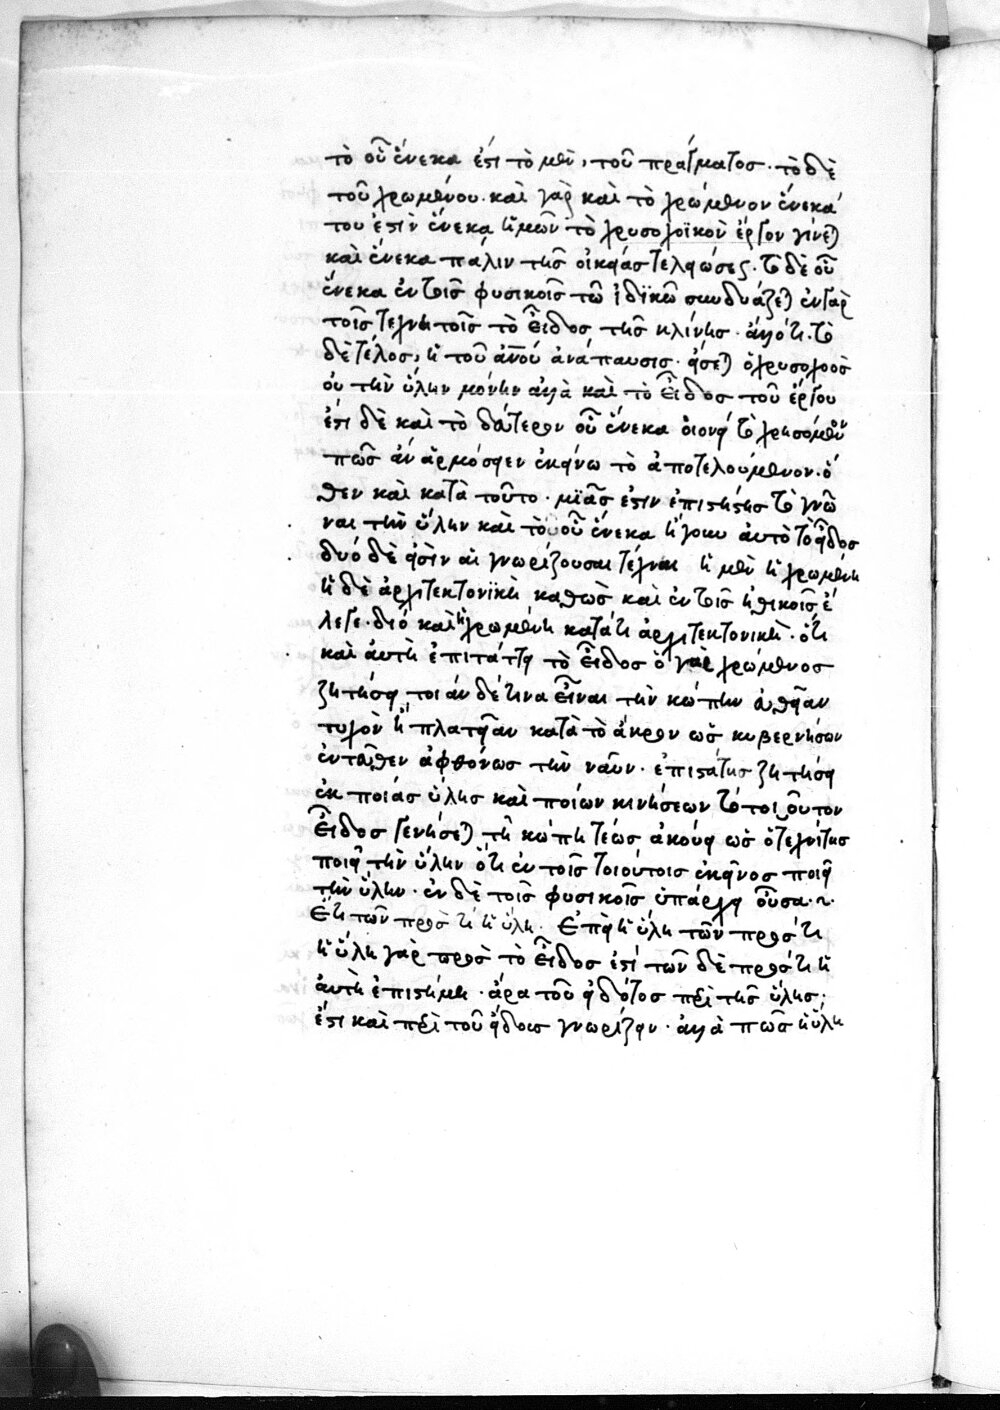 τὸ οὗ ἕνεκα ἐστι τὸ μὲν, τοῦ πράγματος· τὸ δὲ
τοῦ χρωμένου· καὶ γὰρ καὶ τὸ χρώμενον ἕνεκά
του ἐστὶν ἕνεκα ἡμῶν τὸ χρυσοχοϊκὸν ἔργον γίνεται
καὶ ἕνεκα πάλιν τῆς οἰκείας τελειώσεως· τὸ δὲ οὗ
ἕνεκα ἐν τοῖς φυσικοῖς τῶ εἰδικῶ συνδυάζεται ἐν γὰρ
τοῖς τεχνητοῖς τὸ εἶδος τῆς κλίνης· ἄλλό τι· τὸ
δὲ τέλος, ἡ τοῦ ἀνου ἀνάπαυσις· ὁ χρυσοχοὸς
οὐ τὴν ὕλην μόνην ἀλλὰ καὶ τὸ εἶδος τοῦ ἔργου
ἔτι δὲ καὶ τὸ δεύτερον οὗ ἕνεκα οἱονεὶ τὸ χρησόμενον
πῶς ἂν ἁρμόσειεν ἐκείνω τὸ ἀποτελούμενον· ὅ
θεν καὶ κατὰ τοῦτο· μϊᾶς ἐστιν ἐπιστήμης τὸ γνῶ
ναι τὴν ὕλην καὶ τὸ οὗ ἕνεκα ἤγουν αὐτὸ τὸ εἶδος
δυό δὲ εἰσὶν αἱ γνωρίζουσαι τέχναι ἡ μὲν ἡ χρωμένη
ἡ δὲ ἀρχιτεκτονϊκὴ καθὼς καὶ ἐν τοῖς ἠθικοῖς ἔ
λεγε· διό καὶ ἡ χρωμένη κατά τι ἀρχιτεκτονικὴ· ὅτι
καὶ αὐτὴ ἐπιτάττει τὸ εἶδος ὁ γὰρ χρώμενος
ζητήσει ποιάν δέ τινα εἶναι τὴν κώπην εὐθεῖαν
τυχὸν ἢ πλατεῖαν κατὰ τὸ ἄκρον ὡς κυβερνήσων
ἐντεῦθεν ἀφθόνως τὴν ναῦν· ἐπιστάτης ζητήσει
ἐκ ποίας ὕλης καὶ ποίων κινήσεων τὸ τοιοῦτον
εἶδος γενήσεται τῆ κώπη τέως ἀκούει ὡς ὁ τεχνίτης
ποιεῖ τὴν ὕλην ὅτι ἐν τοῖς τοιούτοις ἐκεῖνος ποιεῖ
τὴν ὕλην· ἐν δὲ τοῖς φυσικοῖς ὑπάρχει οὖσα·
Ἔτι τῶν πρός τι ἡ ὕλη· Ἐπεὶ ἡ ὕλη τῶν πρός τι
ἡ ὕλη γὰρ πρὸς τὸ εἶδος ἐστί τῶν δὲ πρός τι ἡ
αὐτὴ ἐπιστήμη· ἄρα τοῦ εἰδότος περὶ τῆς ὕλης,
ἐστι καὶ περὶ τοῦ εἴδους γνωρίζειν· ἀλλὰ πῶς ἡ ὕλη